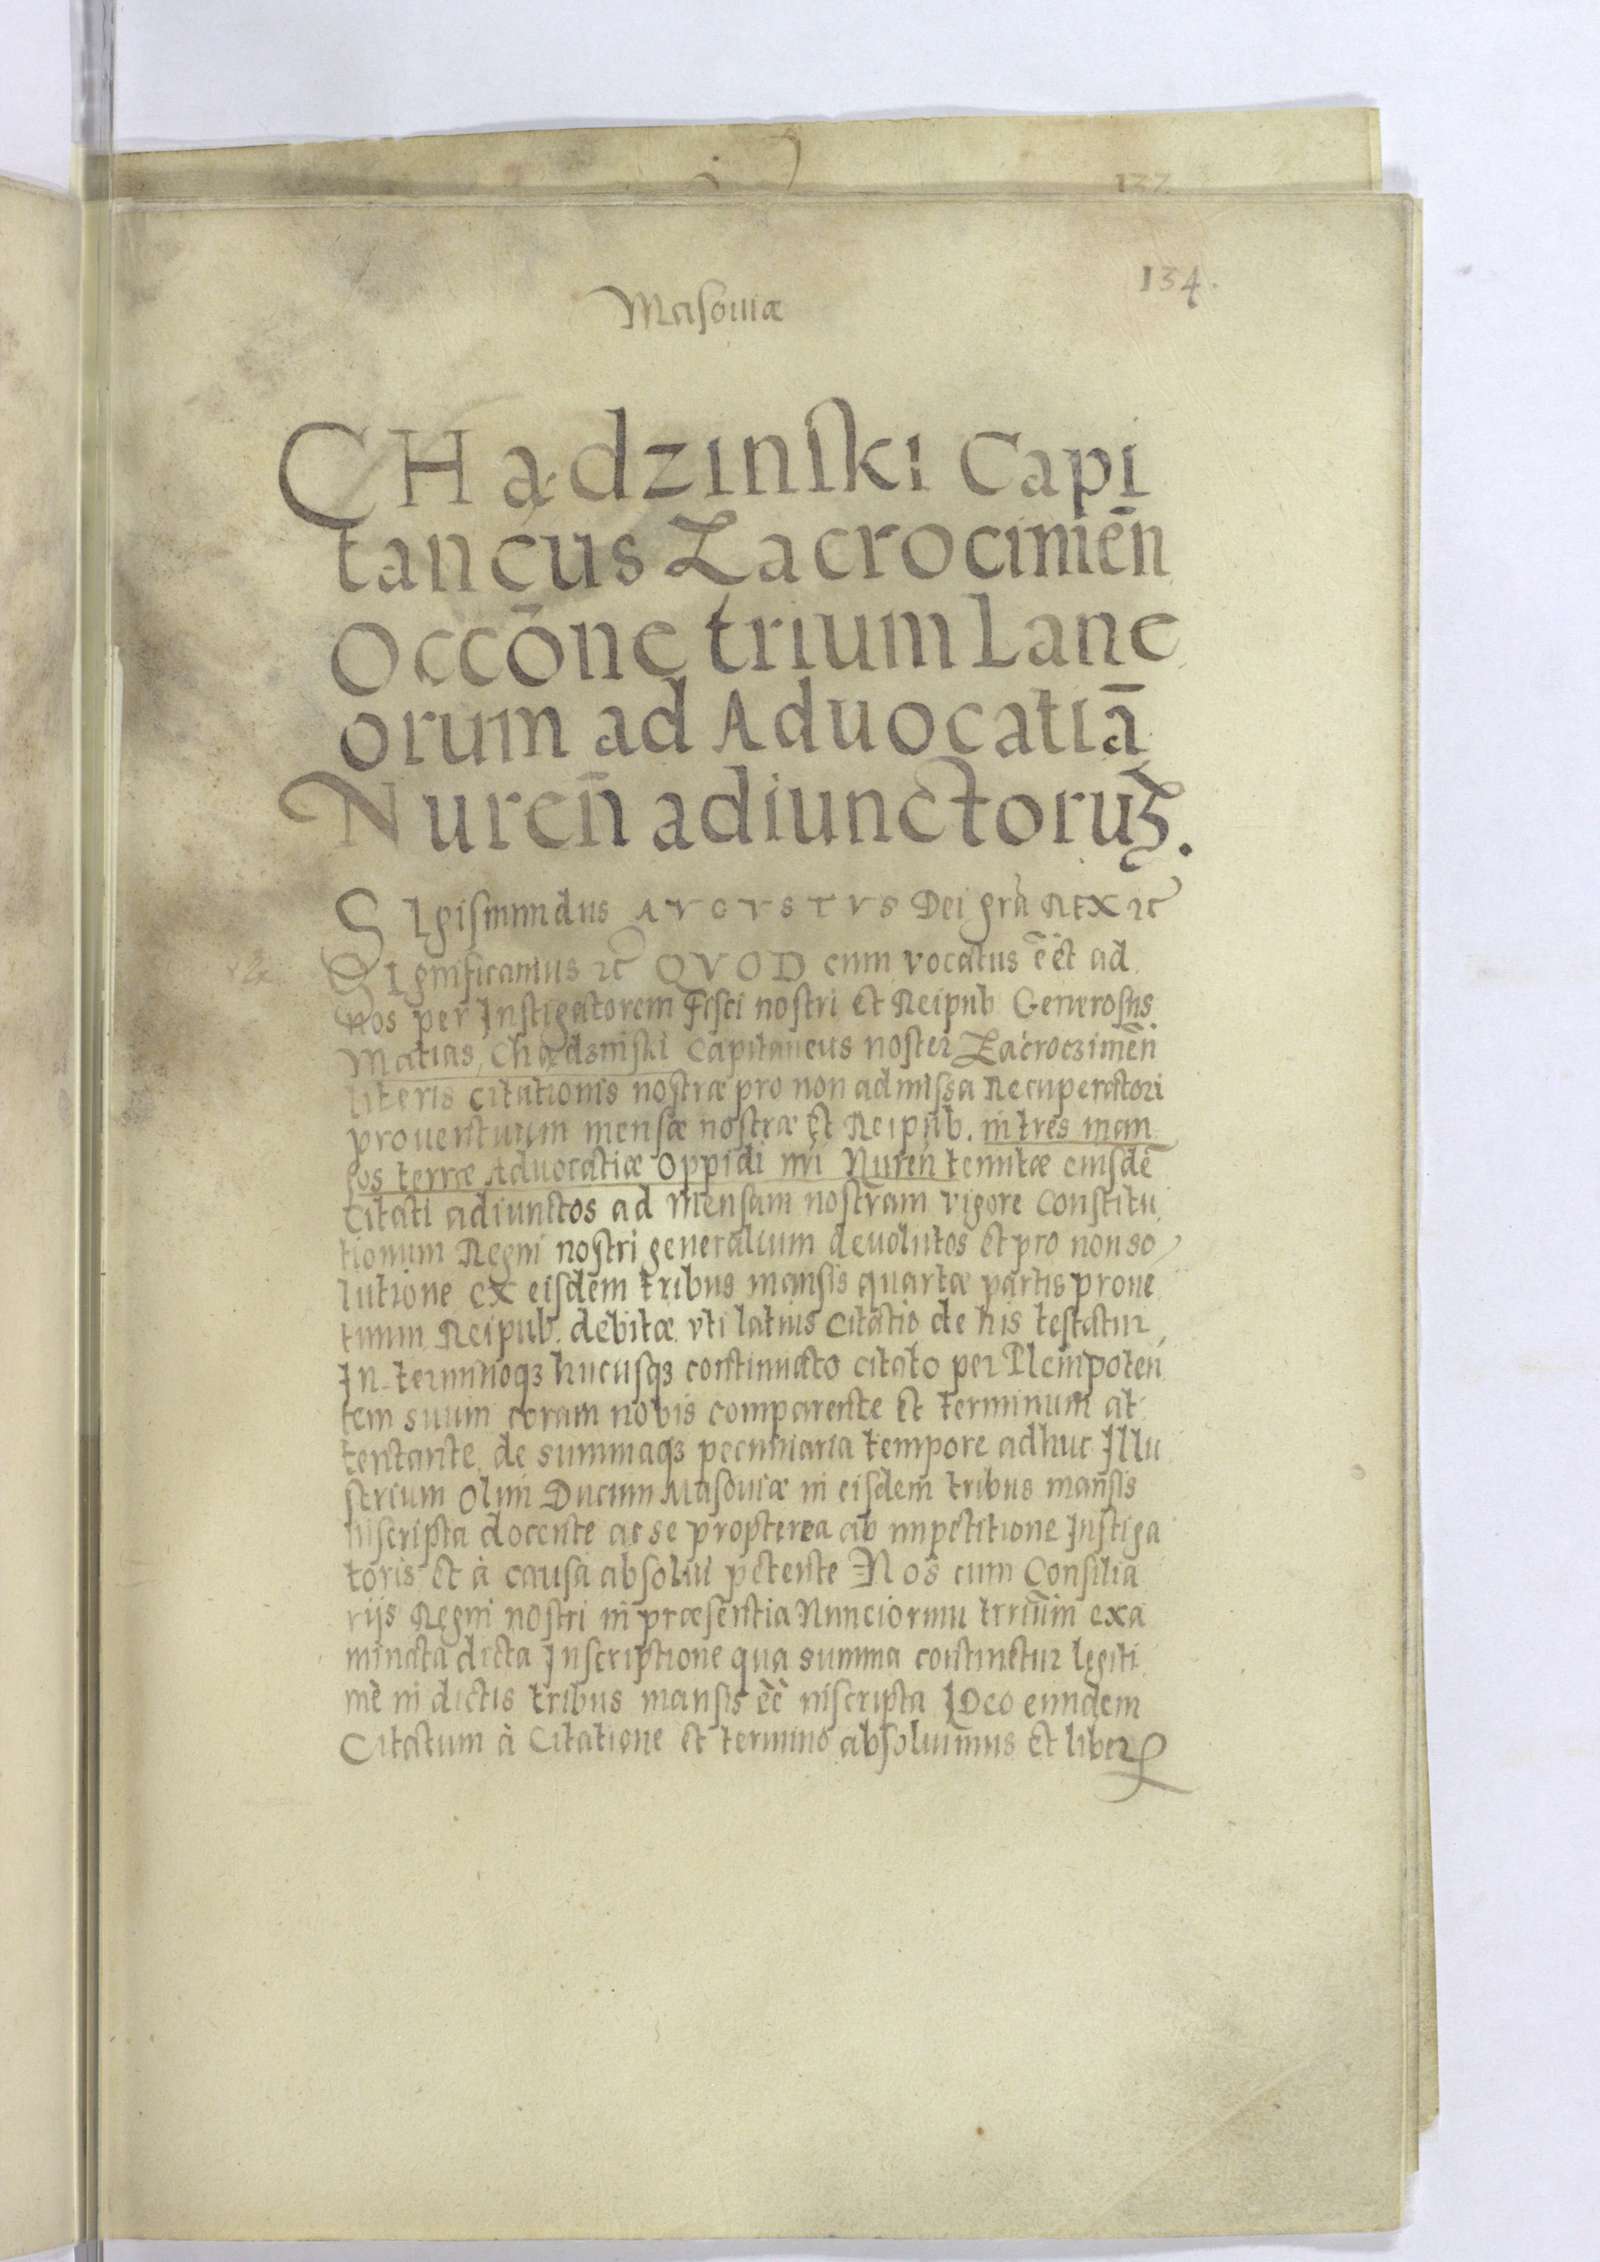 134.
Masouiæ
CHądzinski Capi
taneus Zacrocimēn
Occōne trium Lane
orum ad Aduocatiā
Nureñ adiunctoruʒ.
SIgismundus AVGVSTVS Dei grã REX ꝛc
SIgnificamus ꝛc QVOD cum vocatus eēt ad
nos per Instigatorem Fisci nostri et Reipub. Generosus
Matias Chądzinski Capitaneus noster Zacroczimēn
literis citationis nostræ pro non admissa Recuperatori
prouentuum mensæ nostræ et Reipub. in tres man
sos terræ Aduocatiæ Oppidi nri Nureñ tenutæ eiusdē
Citati adiunctos ad Mensam nostram vigore Constitu
tionum Regni nostri generalium deuolutos et pro non so
lutione ex eisdem tribus mansis quartæ partis proue
tuum Reipub. debitæ vti latius Citatio de his testatur
In terminoqꝫ hucusqꝫ continuato citato per Plenipoten
tem suum coram nobis comparente et terminum at
tentante, de summaqꝫ pecuniaria tempore adhuc Illu
strium olim Ducum Masouiæ in eisdem tribus mansis
inscripta docente ac se propterea ab impetitione Instiga
toris et à causa absolui petente Nos cum Consilia
rijs Regni nostri in præsentia Nunciorum trrium exa
minata dicta Inscriptione qua summa continetur legiti
mè in dictis tribus mansis eēe inscripta IDeo eundem
Citatum à Citatione et termino absoluimus et liber